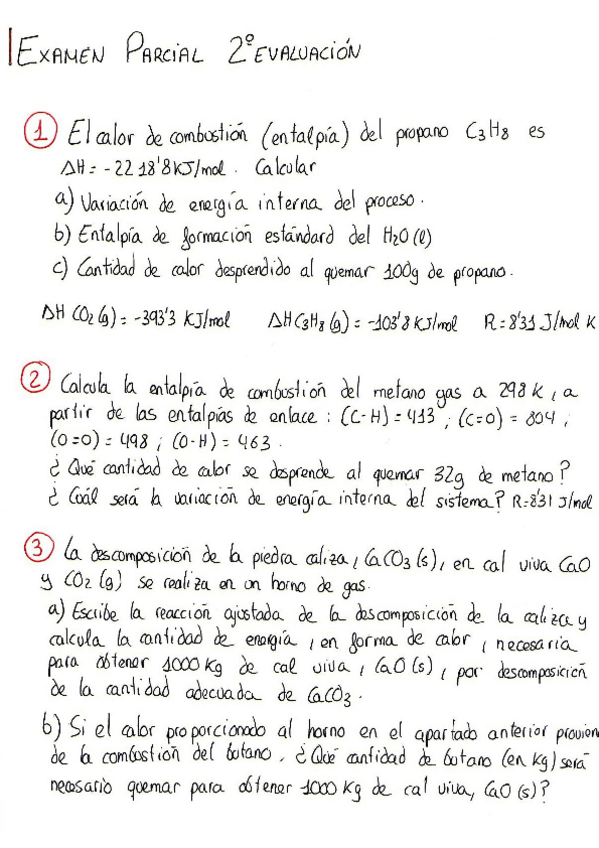 EXAMEN PARCIAL 2º EVALUACIÓN
① El calor de combustión (entalpía) del propano C3H8 es
ΔH = -2218'8 KJ/mol. Calcular
a) Variación de energía interna del proceso.
b) Entalpía de formación estándard del H2O (l)
c) Cantidad de calor desprendido al quemar 100g de propano.
ΔH CO2 (g) = -393'3 KJ/mol ΔH C3H8 (g) = -103'8 KJ/mol R = 8'31 J/mol K
② Calcula la entalpía de combustión del metano gas a 298 K, a
partir de las entalpías de enlace: (C-H) = 413; (C=O) = 804;
(O=O) = 498; (O-H) = 463.
¿Qué cantidad de calor se desprende al quemar 32g de metano?
¿Cuál será la variación de energía interna del sistema? R=8'31 J/mol
③ La descomposición de la piedra caliza, CaCO3 (s), en cal viva CaO
y CO2 (g) se realiza en un horno de gas.
a) Escribe la reacción ajustada de la descomposición de la caliza y
calcula la cantidad de energía, en forma de calor, necesaria
para obtener 1000 Kg de cal viva, CaO (s), por descomposición
de la cantidad adecuada de CaCO3.
b) Si el calor proporcionado al horno en el apartado anterior provien
de la combustión del butano, ¿Qué cantidad de butano (en Kg) será
necesario quemar para obtener 1000 Kg de cal viva, CaO (s)?